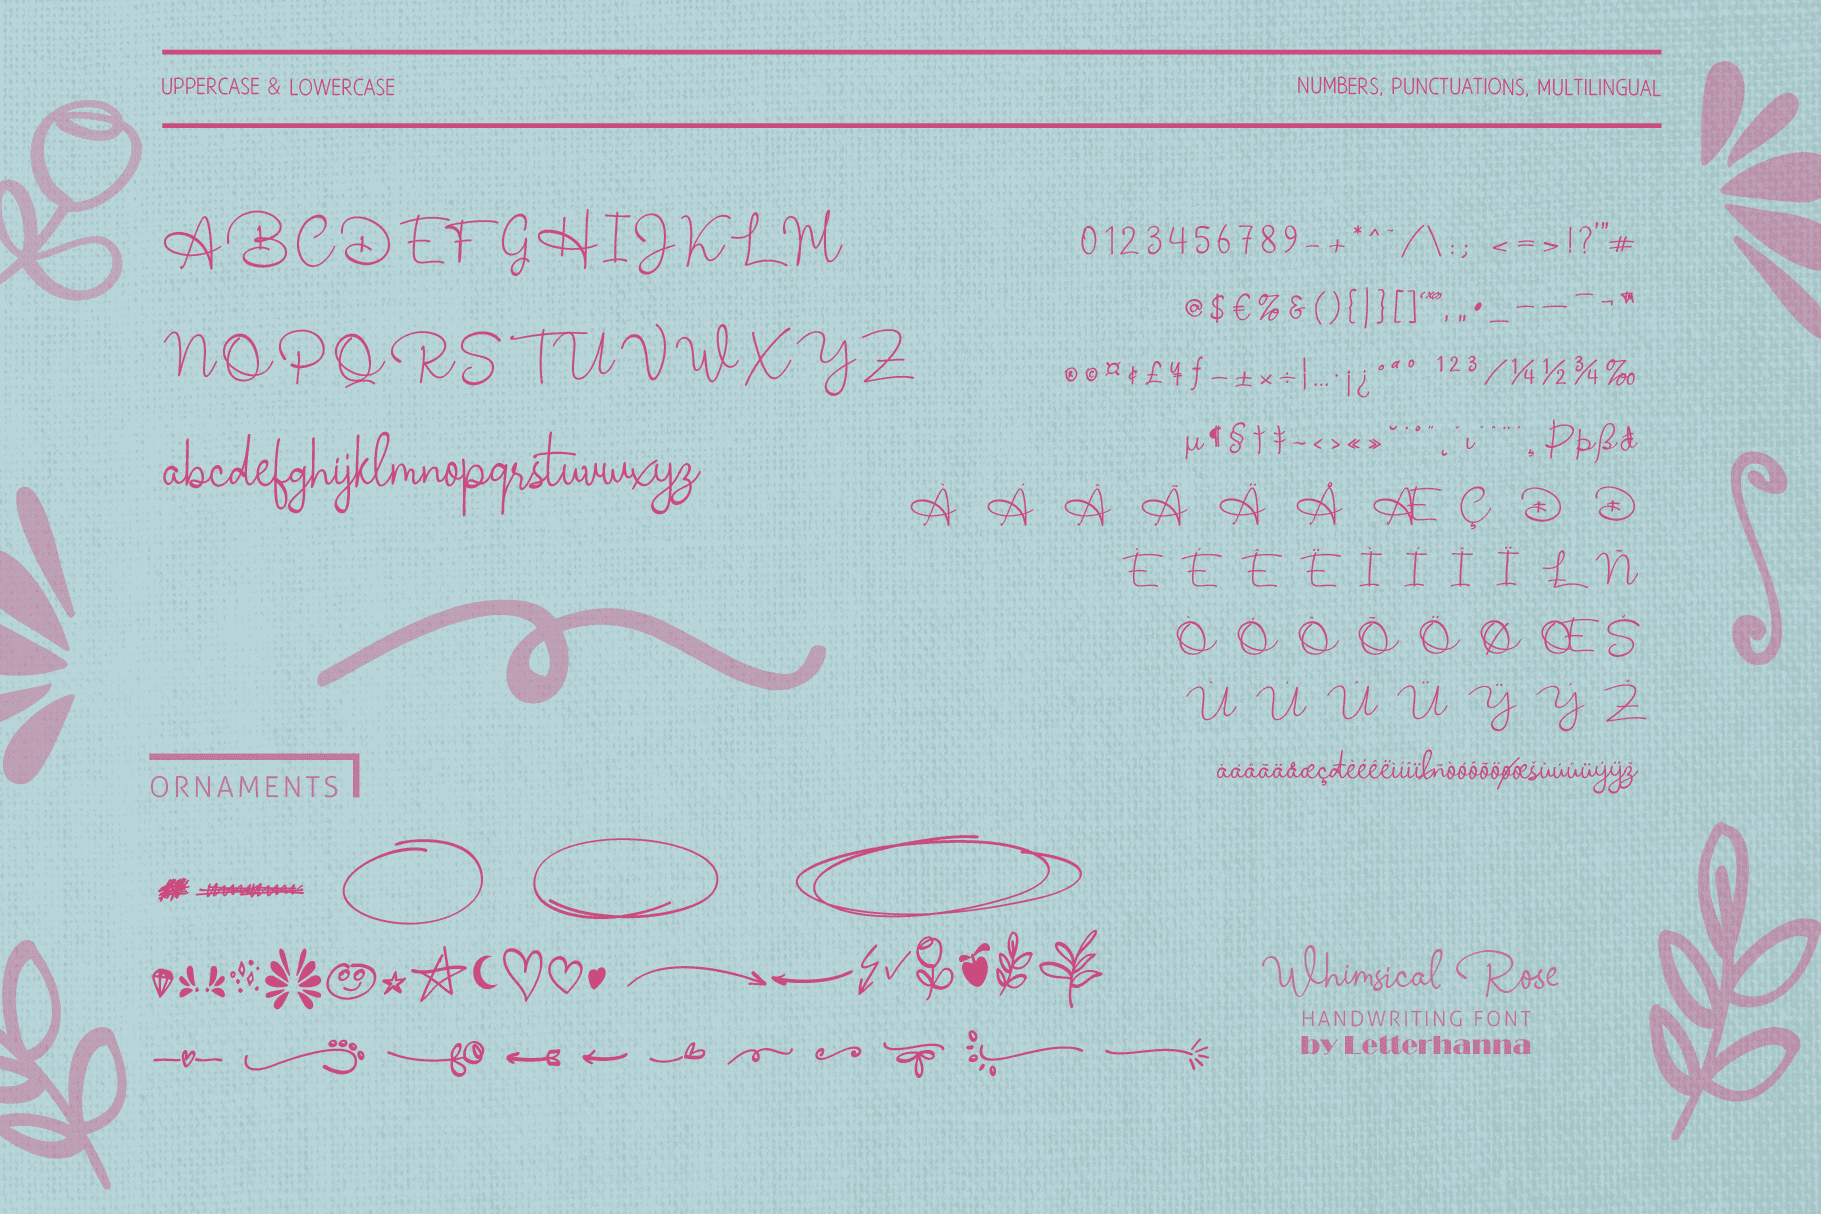 UPPERCASE & LOWERCASE
NUMBERS, PUNCTUATIONS, MULTILINGUAL
ABCDEFGHIJKLM
NOPQRSTUVWXYZ
abcdefghijklmnopqrstuvwxyz
0123456789–+*^~/\:; <=>!?'"#
@$€%&(){|}[]
®©¤¢£¥ƒ—±×÷¦…·¡¿°ªº ¹²³⁄¼½¾‰
µ¶§†‡~‹›«» ÞþßƋ
ÀÁÂÃÄÅÆÇÐĐ
ÈÉÊËÌÍÎÏŁÑ
ÒÓÔÕÖØŒŠ
ÙÚÛÜŸÝŽ
àáâãäåæçđèéêëìíîïłñòóôõöøœšùúûüýÿž
ORNAMENTS
Whimsical Rose
HANDWRITING FONT
by Letterhanna